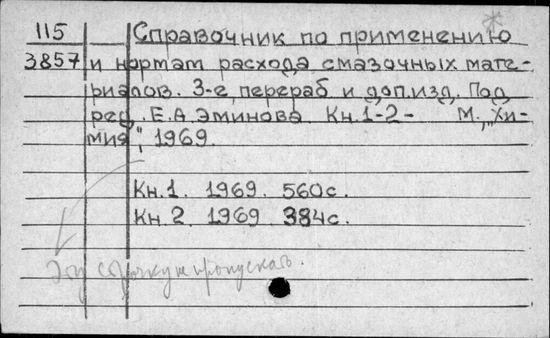 115 Справочник по применению
3857 и нормам расхода смазочных мате-
риалов. 3-е перераб и доп.изд. Под
ред. Е.А Эминова Кн.1-2- М., "Хи-
мия", 1969.
Кн.1. 1969. 560с.
Кн.2. 1969. 384с.
Эту строчку не пропускать.